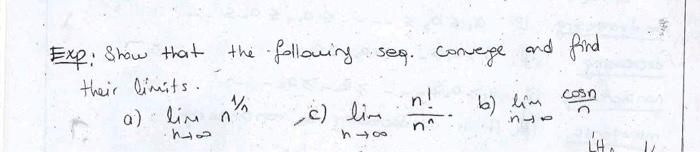 Exp: Show that the following seq. converge and find
their limits.
a) lim n→∞ n^1/n , c) lim n→∞ n!/n^n . b) lim n→∞ cosn/n
LH